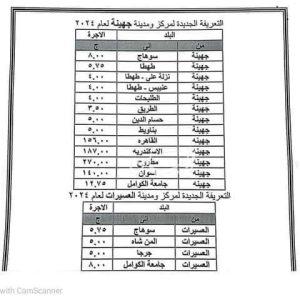 التعريفة الجديدة لمركز ومدينة جهينة لعام ٢٠٢٤
البلد الاجرة
من إلى ج
جهينة سوهاج ٨,٠٠
جهينة طهطا ٥,٧٥
جهينة نزلة على - طهطا ٤,٠٠
جهينة عنيبس - طهطا ٤,٠٠
جهينة الطليحات ٤,٠٠
جهينة الطريق ٣,٥٠
جهينة حسام الدين ٥,٠٠
جهينة بناويط ٥,٠٠
جهينة القاهره ١٥٦,٠٠
جهينة الاسكندريه ١٨٧,٠٠
جهينة مطروح ٢٧٠,٠٠
جهينة اسوان ١٤٠,٠٠
جهينة جامعة الكوامل ١٢,٧٥
التعريفة الجديدة لمركز ومدينة العسيرات لعام ٢٠٢٤
البلد الاجرة
من إلى ج
العسيرات سوهاج ٥,٧٥
العسيرات المنشاه ٥,٠٠
العسيرات جرجا ٥,٠٠
العسيرات جامعة الكوامل ٨,٠٠
with CamScanner